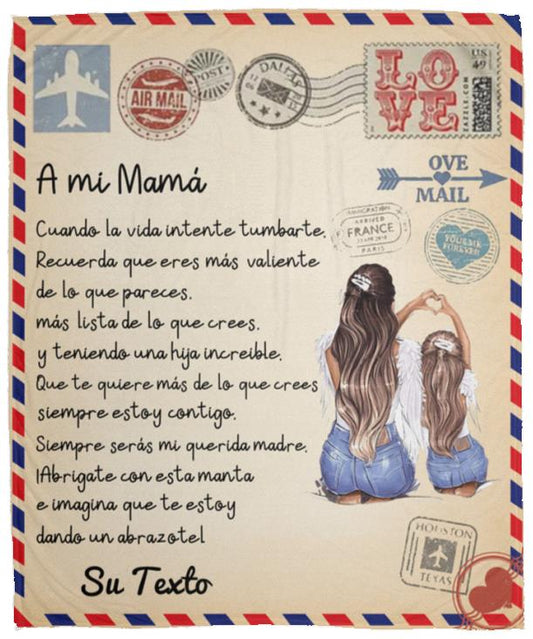 AIR MAIL
POST
DALLAS
US
49
LOVE
ZAZZLE.COM
A mi Mamá
OVE
MAIL
Cuando la vida intente tumbarte,
Recuerda que eres más valiente
de lo que pareces,
más lista de lo que crees,
y teniendo una hija increible,
Que te quiere más de lo que crees
siempre estoy contigo,
Siempre serás mi querida madre,
¡Abrigate con esta manta
e imagina que te estoy
dando un abrazote!
IMMIGRATION
ARRIVED
FRANCE
PARIS
FOREVER
Su Texto
HOUSTON
TEXAS